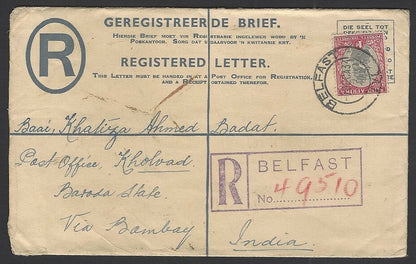 GEREGISTREERDE BRIEF.
HIERDIE BRIEF MOET VIR REGISTRASIE INGELEWER WORD BY 'N
POSKANTOOR. SORG DAT U DAARVOOR 'N KWITANSIE KRY.
REGISTERED LETTER.
THIS LETTER MUST BE HANDED IN AT A POST OFFICE FOR REGISTRATION,
AND A RECEIPT OBTAINED THEREFOR.
R
DIE SEEL TOT
BELFAST
Baai, Khatiza Ahmed Badat.
Post Office, Kholvad
Baroda State.
Via Bombay
India.
R
BELFAST
No. 49510